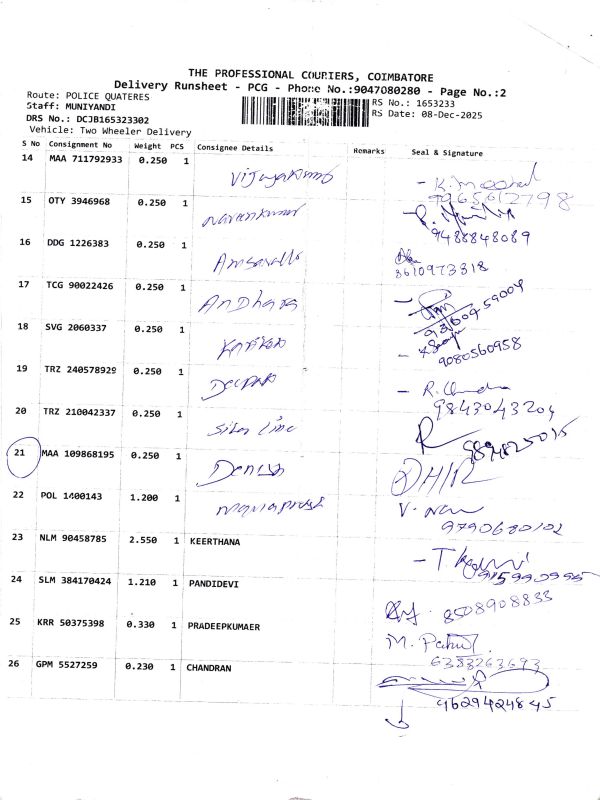 THE PROFESSIONAL COURIERS, COIMBATORE
Delivery Runsheet - PCG - Phone No.:9047080280 - Page No.:2
Route: POLICE QUATERES
RS No.: 1653233
Staff: MUNIYANDI
RS Date: 08-Dec-2025
DRS No.: DCJB165323302
Vehicle: Two Wheeler Delivery
S No Consignment No Weight PCS Consignee Details Remarks Seal & Signature
14 MAA 711792933 0.250 1 Vijayakumar
15 OTY 3946968 0.250 1 Naveenkumar
9488848089
16 DDG 1226383 0.250 1
8610973818
17 TCG 90022426 0.250 1 Andhara
18 SVG 2060337 0.250 1
9080560958
19 TRZ 240578929 0.250 1 Deepak
- R. Chandra
9843043204
20 TRZ 210042337 0.250 1 Silver Line
9894825015
21 MAA 109868195 0.250 1 Danish
22 POL 1400143 1.200 1
9790680102
23 NLM 90458785 2.550 1 KEERTHANA
9159990995
24 SLM 384170424 1.210 1 PANDIDEVI
8508908833
25 KRR 50375398 0.330 1 PRADEEPKUMAER
6383263693
26 GPM 5527259 0.230 1 CHANDRAN
9629424845